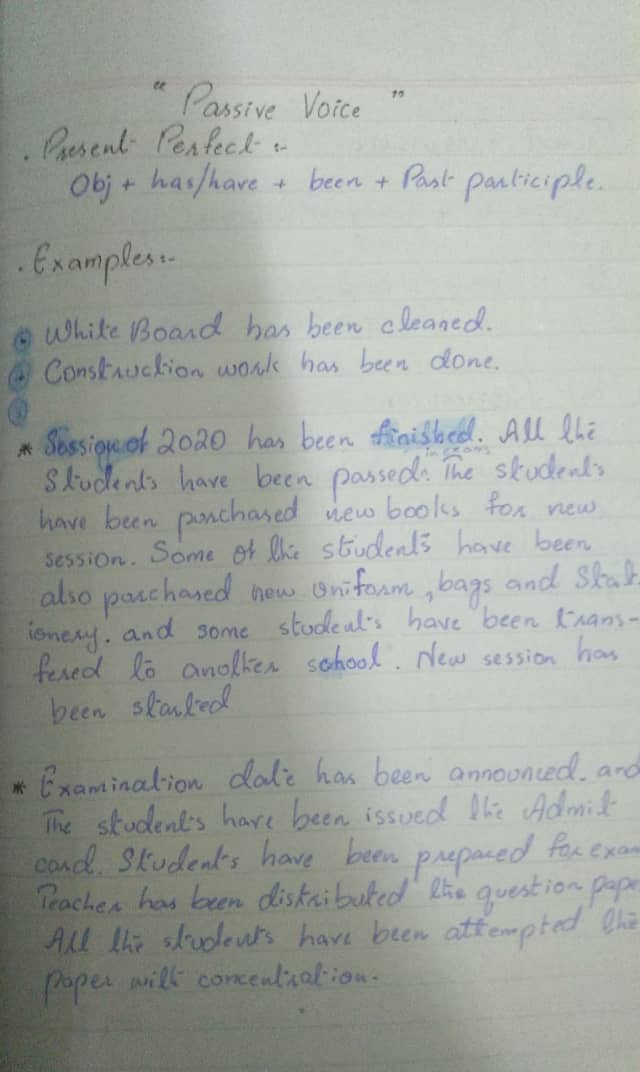 " Passive Voice "
. Present Perfect :-
Obj + has/have + been + Past participle.
. Examples:-
White Board has been cleaned.
Construction work has been done.
* Session of 2020 has been finished. All the
Students have been passed. The students
have been purchased new books for new
session. Some of the students have been
also purchased new uniform, bags and Stat-
ionery. and some students have been trans-
fered to another school. New session has
been started
* Examination date has been announced. and
The students have been issued the Admit
card. Students have been prepared for exam
Teacher has been distributed the question pape
All the students have been attempted the
paper with concentration.